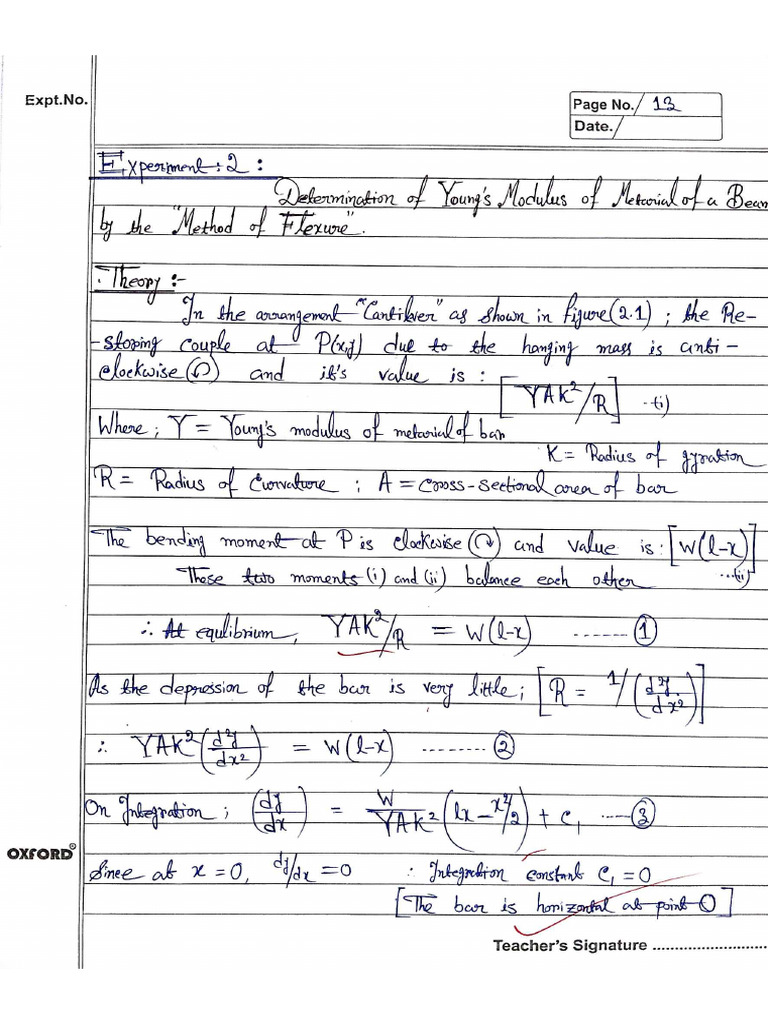 Expt.No.
Page No. 13
Date.
Experment:2:
Determination of Young's Modulus of Metarial of a Beam
by the "Method of Flexure".
Theory :-
In the arrangement "Cantilever" as shown in figure (2.1) ; the Re-
-stoping couple at P(x,y) due to the hanging mass is anti-
clockwise (↺) and it's value is : [YAK²/R] ...(i)
Where ; Y = Young's modulus of metarial of bar
K = Radius of gyration
R = Radius of Curvature ; A = cross-sectional area of bar
The bending moment at P is clockwise (↻) and value is : [W(l-x)]
...(ii)
These two moments (i) and (ii) balance each other
∴ At equlibrium, YAK²/R = W(l-x) ------ ①
As the depression of the bar is very little ; [R = 1/(d²y/dx²)]
∴ YAK² (d²y/dx²) = W(l-x) -------- ②
On Integration ; (dy/dx) = W/YAK² (lx - x²/2) + C₁ ----- ③
Since at x = 0, dy/dx = 0 ∴ Integration constant C₁ = 0
[The bar is horizontal at point O]
OXFORD®
Teacher's Signature ..........................